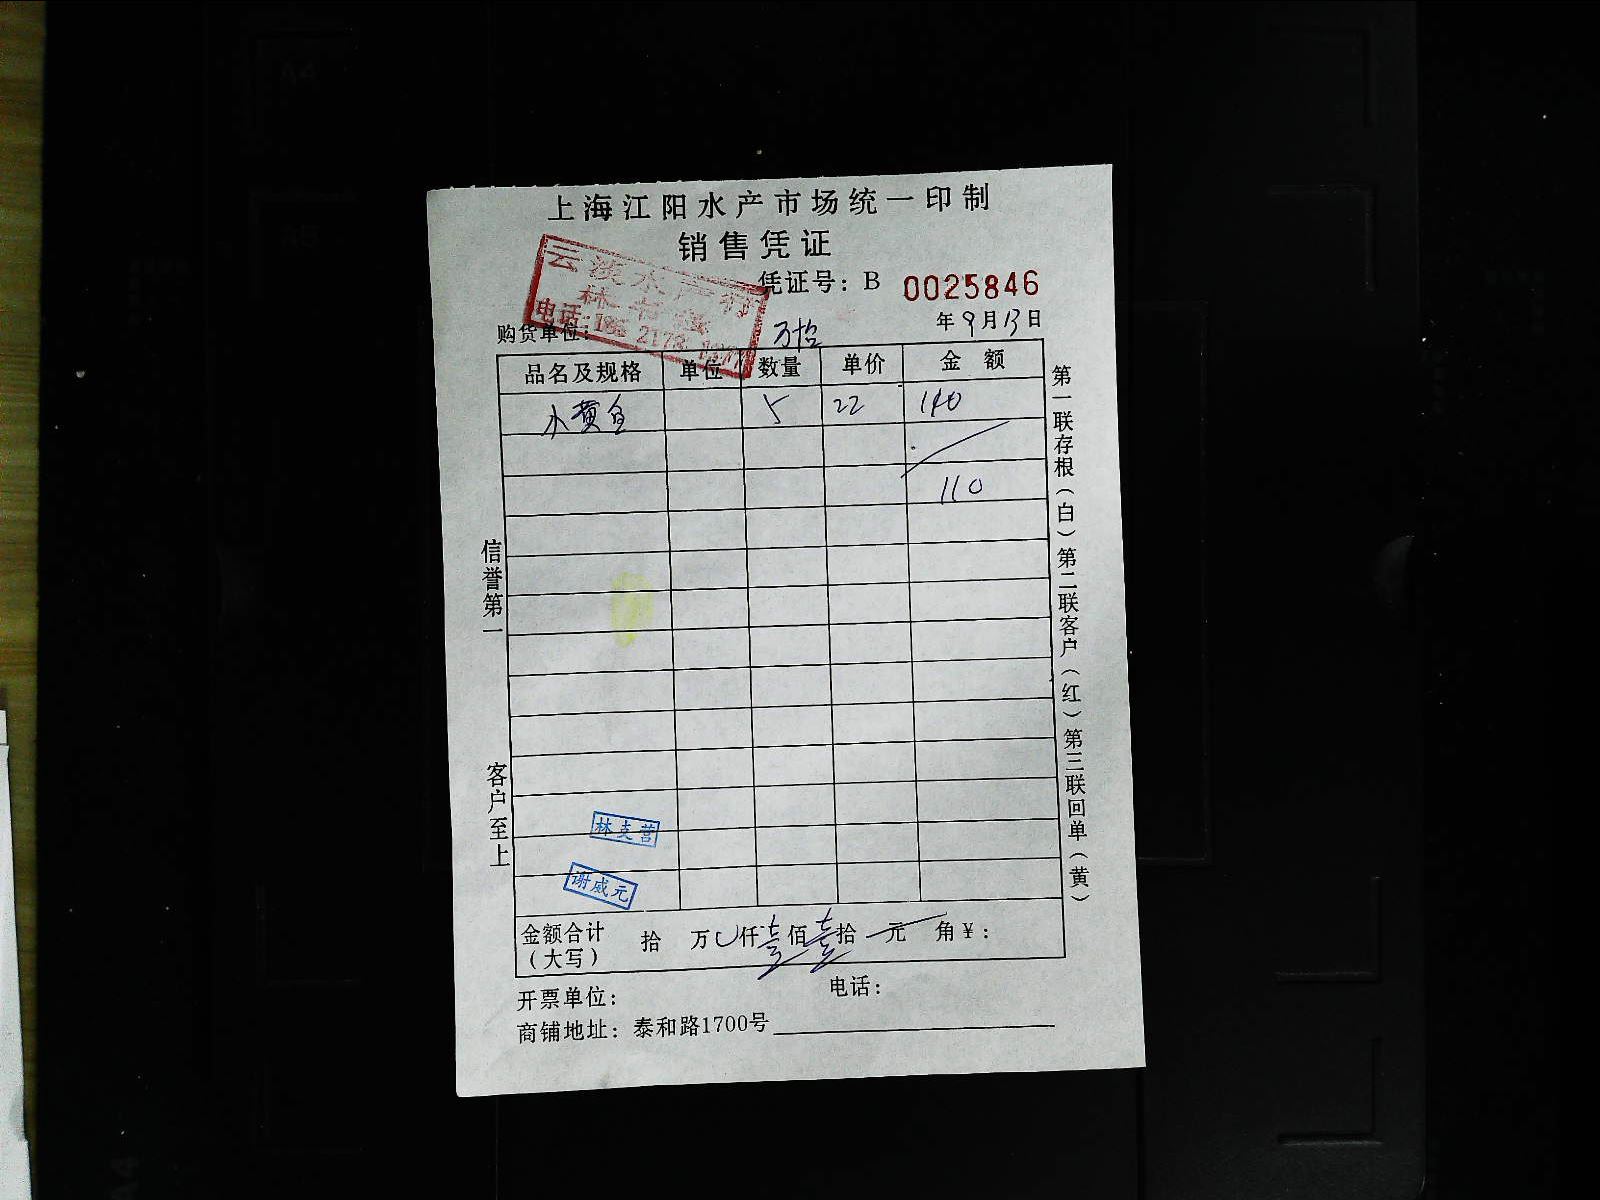 上海江阳水产市场统一印制
销售凭证
凭证号：B 0025846
云淡水产行
林
电话:18 217
购货单位：
年9月13日
品名及规格 单位 数量 单价 金额
小黄鱼 5 22 110
110
信誉第一
客户至上
第一联存根（白）第二联客户（红）第三联回单（黄）
林支营
谢威元
金额合计（大写） 拾 万 仟壹佰壹拾 元 角￥：
开票单位： 电话：
商铺地址：泰和路1700号